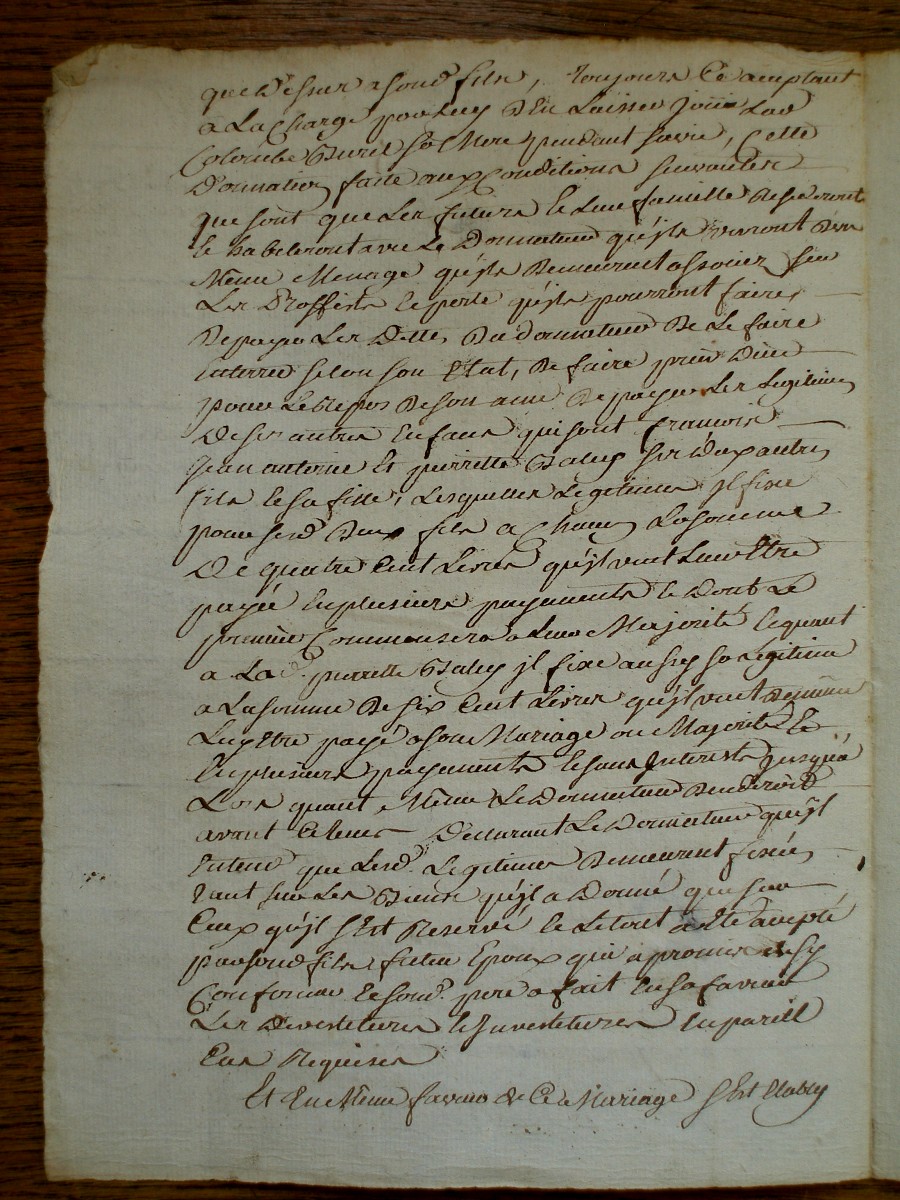 que dessus a sond. fils, toujours Ce acceptant
a La Charge par luy d'En Laisser jouir Lad
Colombe sa Mere pendant sa vie, Cette
Donnation faite aux Conditions suivantes
que sont que Les futurs et Leur famille
et habiteront avec Le Donnateur qu'ils vivront d'un
Même Menage qu'ils Demeureront associez sur
Les Proffits et perte qu'ils pourront faire,
De payer Les Dettes Du donnateur De Le faire
enterrer selon son Etat, De faire prier Dieu
pour Le Repos De son ame De payer Les Legitimes
De ses autres Enfans qui sont francois
jean antoine Et pierrette ses deux autres
fils et sa fille, Lesquelles Legitimes jl fixe
pour sesd. Deux fils a Chacun La somme
De quatre Cent Livres qu'jl veut Leur Etre
payée En plusieurs payements et Dont Le
premier Commensera a Leur Majorité et quant
a Lad. pierrette jl fixe aussy sa Legitime
a La somme De six Cent Livres qu'jl veut De même
Luy Etre payé a son Mariage ou Majorité Et
En plusieurs payements et sans Interests jusqu'a
Lors quant Même Le Donnateur
avant Ce tems Declarant Le Donnateur qu'jl
Entend que Lesd. Legitimes Demeurent fixées
tant sur Les Biens qu'jl a Donné que sur
Ceux qu'jl s'Est Reservé et Le tout a Eté accepté
par sond fils futur Epoux qui a promis s'y
Conformer et sond. pere a fait En sa faveur
Les Devestitures et Investitures En pareil
Cas Requises
Et En Même faveur de Ce Mariage s'Est Etably